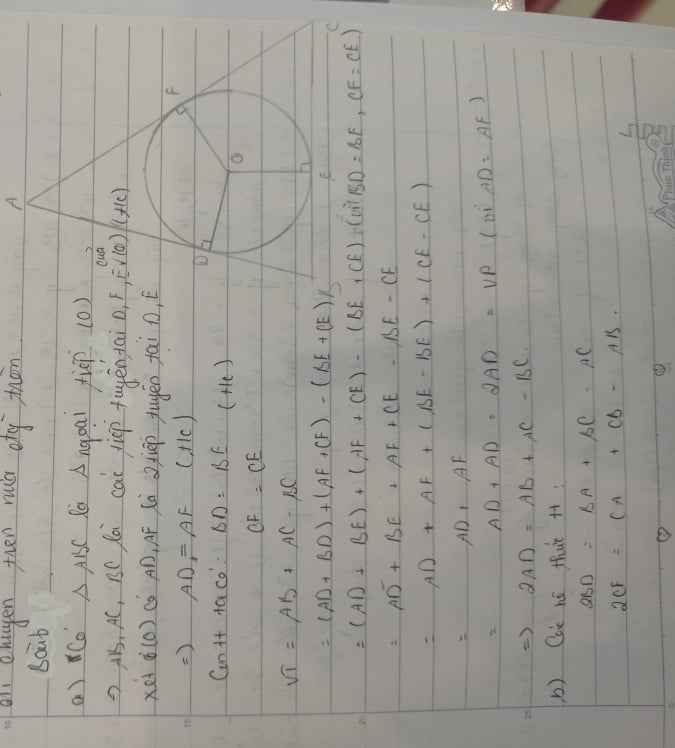 chuyển trên nửa đtg tròn
Bài 6
a) *Có Δ ABC là Δ ngoại tiếp (O)
=> AB, AC, BC là các tiếp tuyến tại D, F, E của (O) (t/c)
Xét (O) có AD, AF là 2 tiếp tuyến tại D, E
=) AD = AF (t/c)
Cmtt ta có: BD = BE (t/c)
CF = CE
VT = AB + AC - BC
= (AD + BD) + (AF + CF) - (BE + CE)
= (AD + BE) + (AF + CE) - (BE + CE) (vì BD = BE, CF = CE)
= AD + BE + AF + CE - BE - CE
= AD + AF + (BE - BE) + (CE - CE)
= AD + AF
= AD + AD = 2AD = VP (vì AD = AF)
=) 2AD = AB + AC - BC.
b) Các hệ thức tt:
2BD = BA + BC - AC
2CF = CA + CB - AB.
A
F
O
D
E
B
C